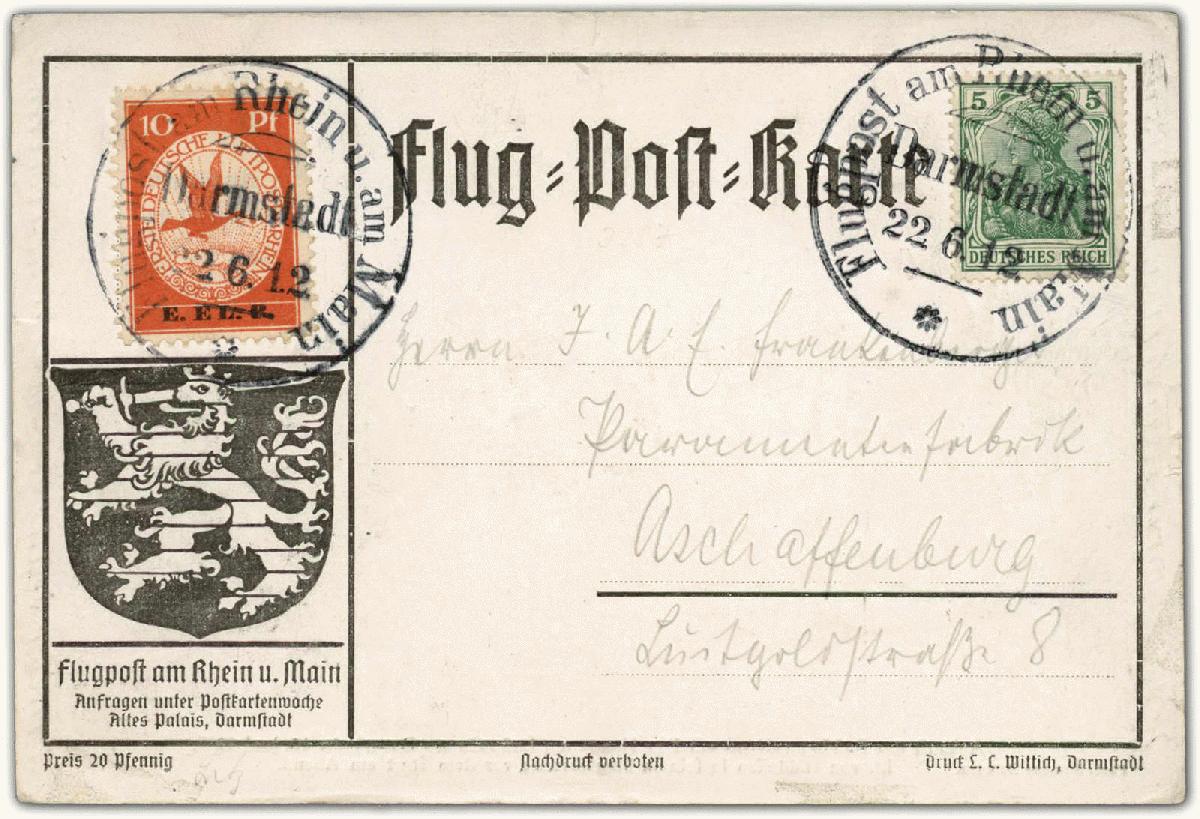 10 Pf
ERSTE DEUTSCHE LUFTPOST AM RHEIN
E. EL. P.
Flugpost am Rhein u. am Main
Darmstadt
22 6. 12
Flug=Post=Karte
5 5
DEUTSCHES REICH
Flugpost am Rhein u. am Main
Darmstadt
22 6. 12
Herrn J. A. E. Frankenberger
Paramentenfabrik
Aschaffenburg
Luitpoldstraße 8
Flugpost am Rhein u. Main
Anfragen unter Postkartenwoche
Altes Palais, Darmstadt
Preis 20 Pfennig
Nachdruck verboten
Druck L. C. Wittich, Darmstadt